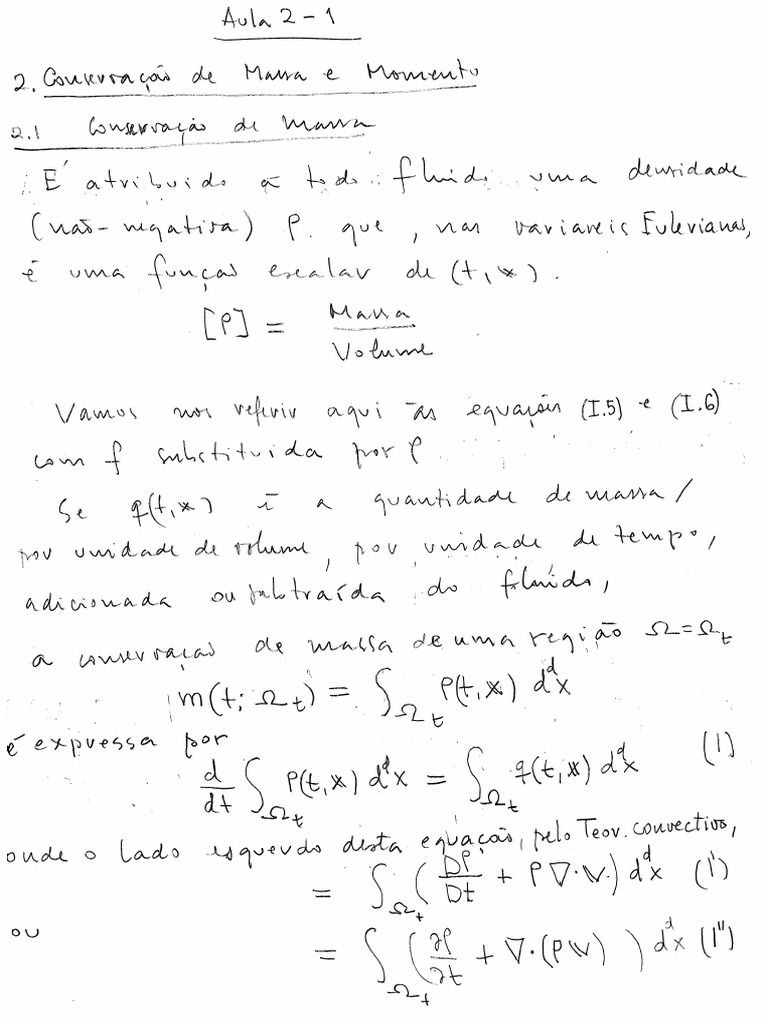 Aula 2-1
2. Conservação de Massa e Momento
2.1 Conservação de massa
É atribuido a todo fluido uma densidade
(não-negativa) ρ que, nas variaveis Eulerianas,
é uma função escalar de (t,x).
[ρ] = Massa / Volume
Vamos nos referir aqui às equações (I.5) e (I.6)
com f substituida por ρ
Se q(t,x) é a quantidade de massa/
por unidade de volume, por unidade de tempo,
adicionada ou subtraída do fluído,
a conservaças de massa de uma região Ω=Ω_t
m(t; Ω_t) = ∫_{Ω_t} ρ(t,x) d^d x
é expressa por
d/dt ∫_{Ω_t} ρ(t,x) d^d x = ∫_{Ω_t} q(t,x) d^d x (1)
onde o lado esquerdo desta equação, pelo Teor. convectivo,
= ∫_{Ω_t} (Dρ/Dt + ρ∇·v) d^d x (1')
ou
= ∫_{Ω_t} (∂ρ/∂t + ∇·(ρv)) d^d x (1'')